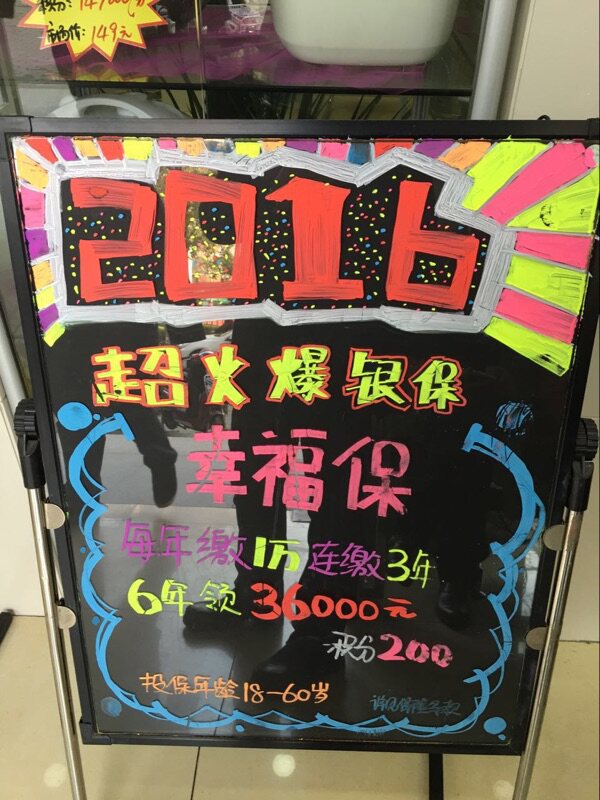 积分:149000分
市场价:149元
2016
超火爆银保
幸福保
每年缴1万连缴3年
6年领36000元
积分200
投保年龄18-60岁
详见保险条款